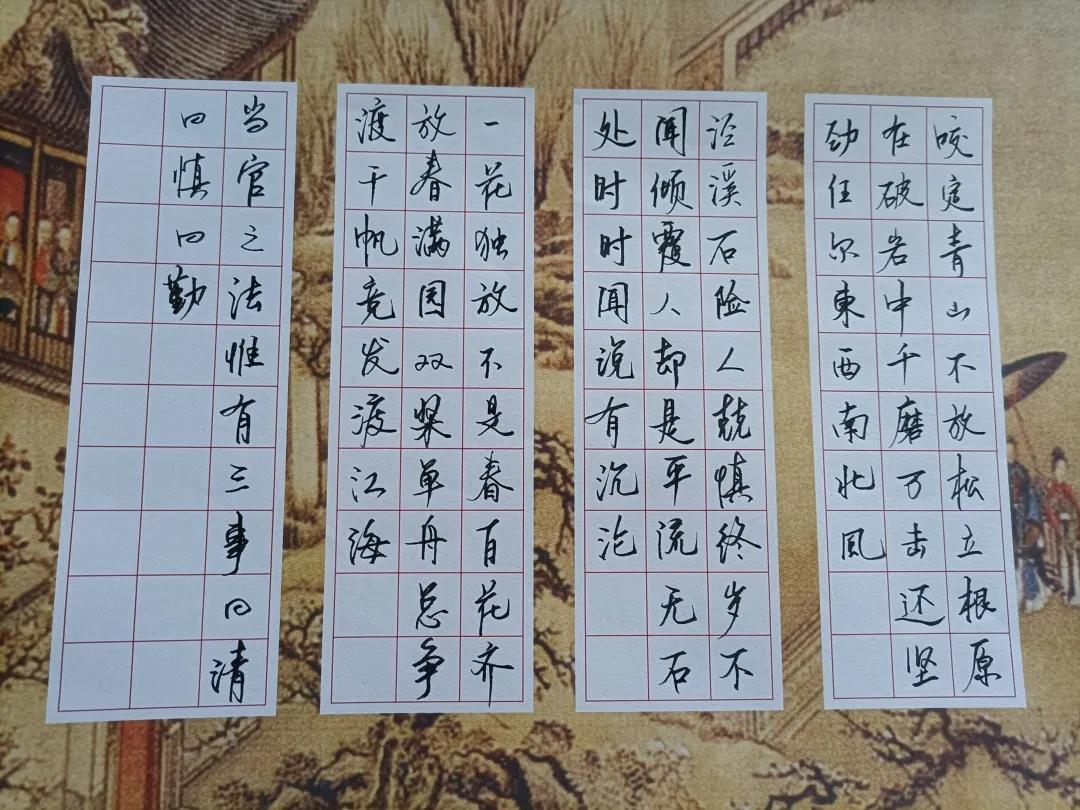 咬定青山不放松立根原
在破岩中千磨万击还坚
劲任尔東西南北风
泾溪石险人兢慎终岁不
闻倾覆人却是平流无石
处时时闻说有沉沦
一花独放不是春百花齐
放春满园双桨单舟总争
渡千帆竞发渡江海
当官之法惟有三事曰清
曰慎曰勤